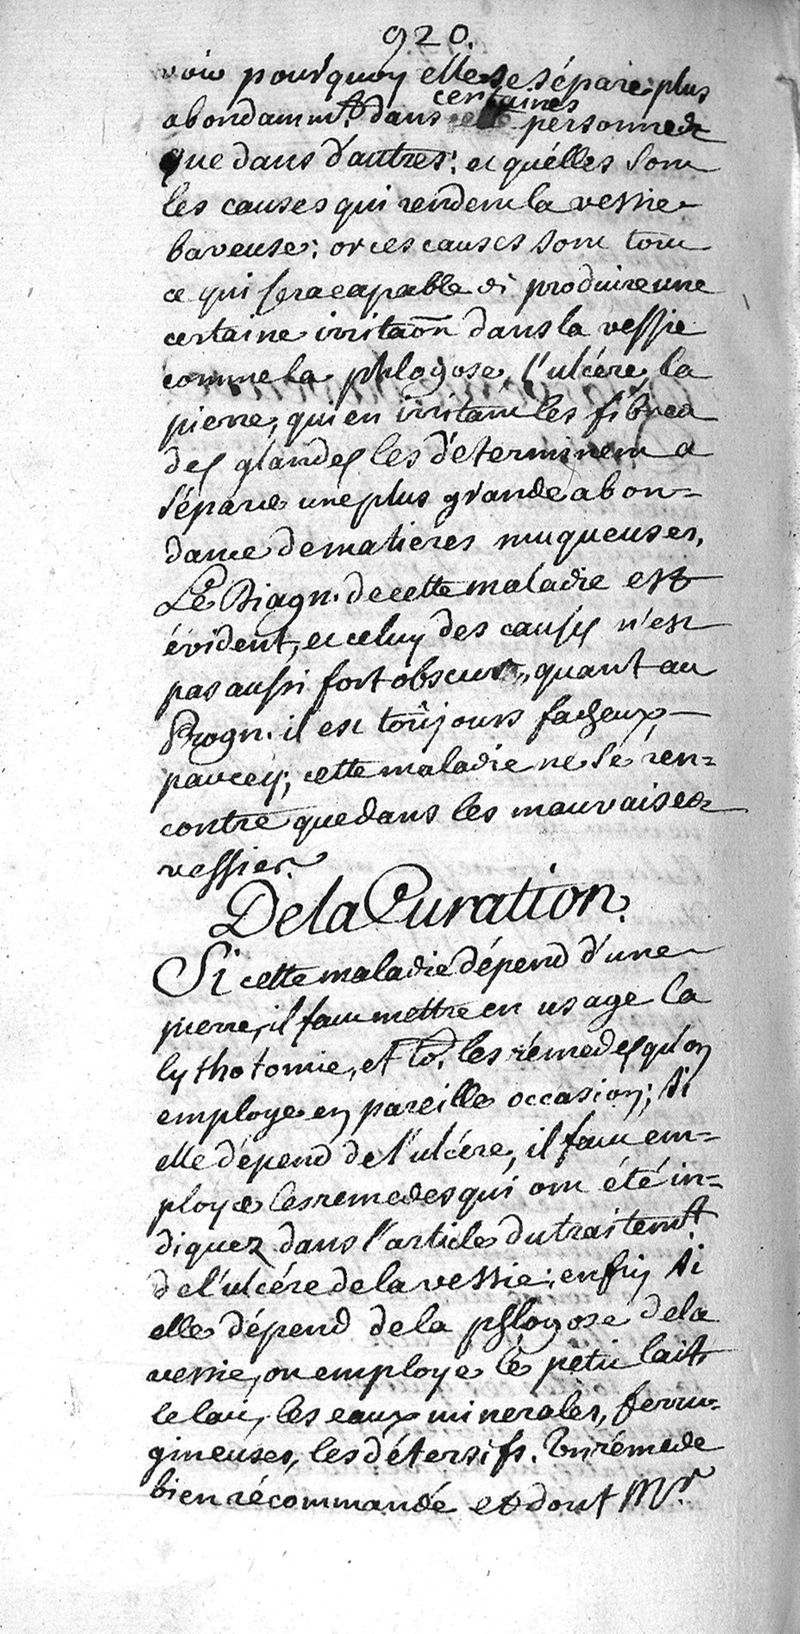 920.
voir pourquoy elle se sépare plus
abondammt. dans certaines personnes
que dans d'autres: et quélles sont
les causes qui rendent la vessie
baveuse: or ces causes sont tout
ce qui sera capable de produire une
certaine irritaõn dans la vessie
comme la phlogose, l'ulcére, la
pierre, qui en irritant les fibres
des glandes les déterminent a
séparer une plus grande abon=
dance de matieres muqueuses,
Le Diagn. de cette maladie est
évident, et celuy des causes n'est
pas aussi fort obscur, quant au
Progn. il est toûjours facheux,
parceq; cette maladie ne se ren=
contre que dans les mauvaises
vessies.
De la Curation.
Si cette maladie dépend d'une
pierre, il faut mettre en usage la
lythotomie, et ts. les rémedes qu'on
employe en pareille occasion; si
elle dépend de l'ulcére, il faut em=
ployer les remedes qui ont été in=
diquez dans l'article du traitemt.
de l'ulcére de la vessie; enfin si
elle dépend de la phlogose de la
vessie, on employe le petit lait,
le lait, les eaux minerales, ferru=
gineuses, les détersifs. Un rémede
bien récommandé et dont Mr.